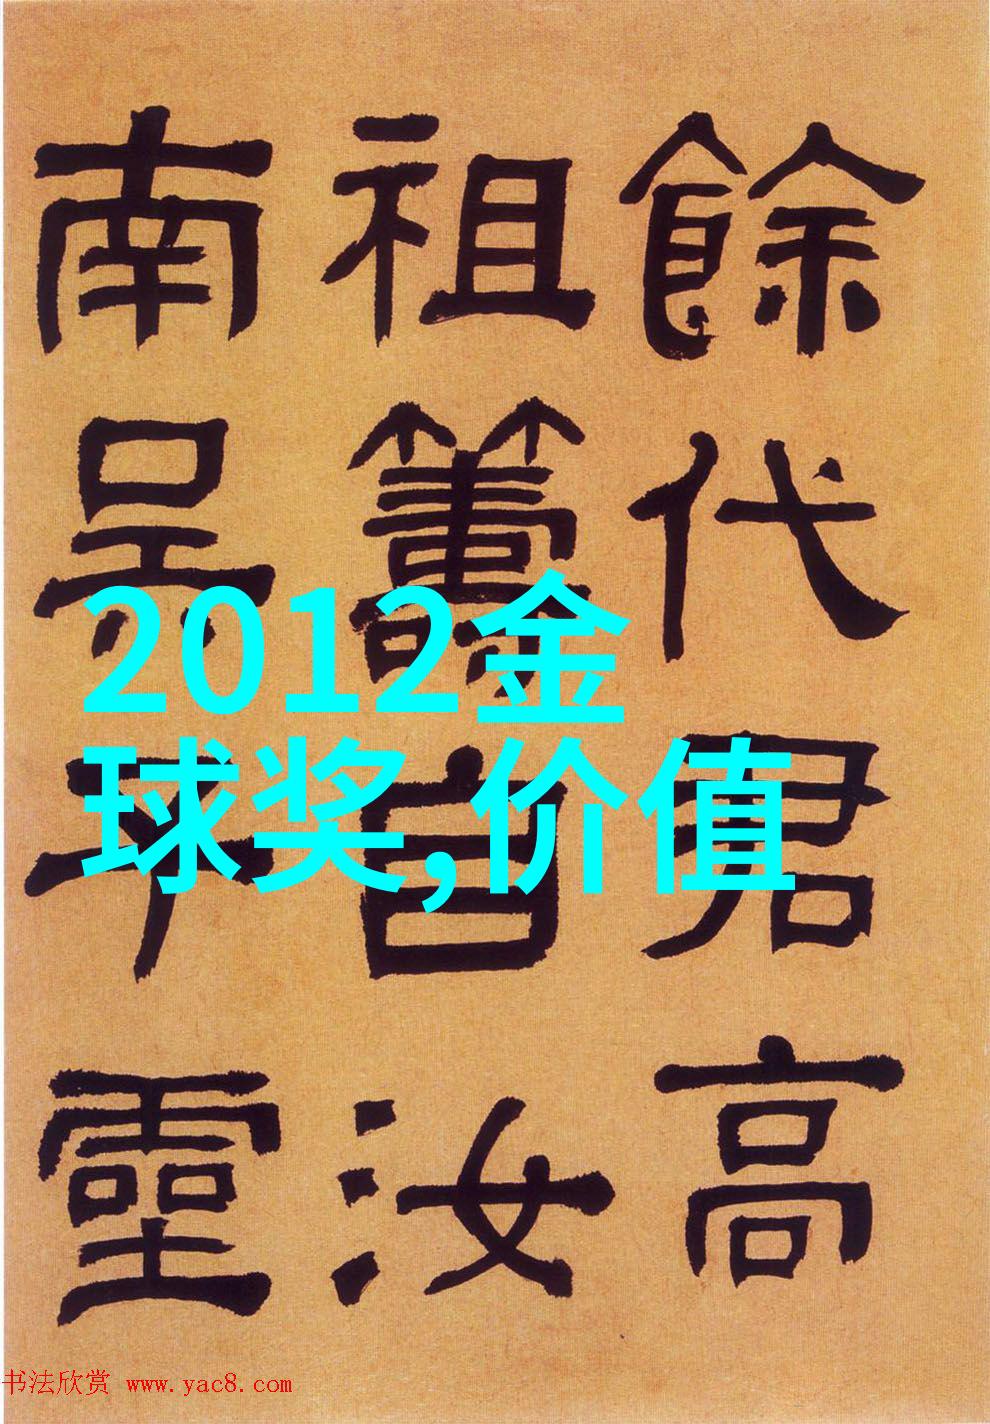 餘代君高
祖籌自汝
南吴平靈
2012金
球奖,价值
书法欣赏 www.yac8.com